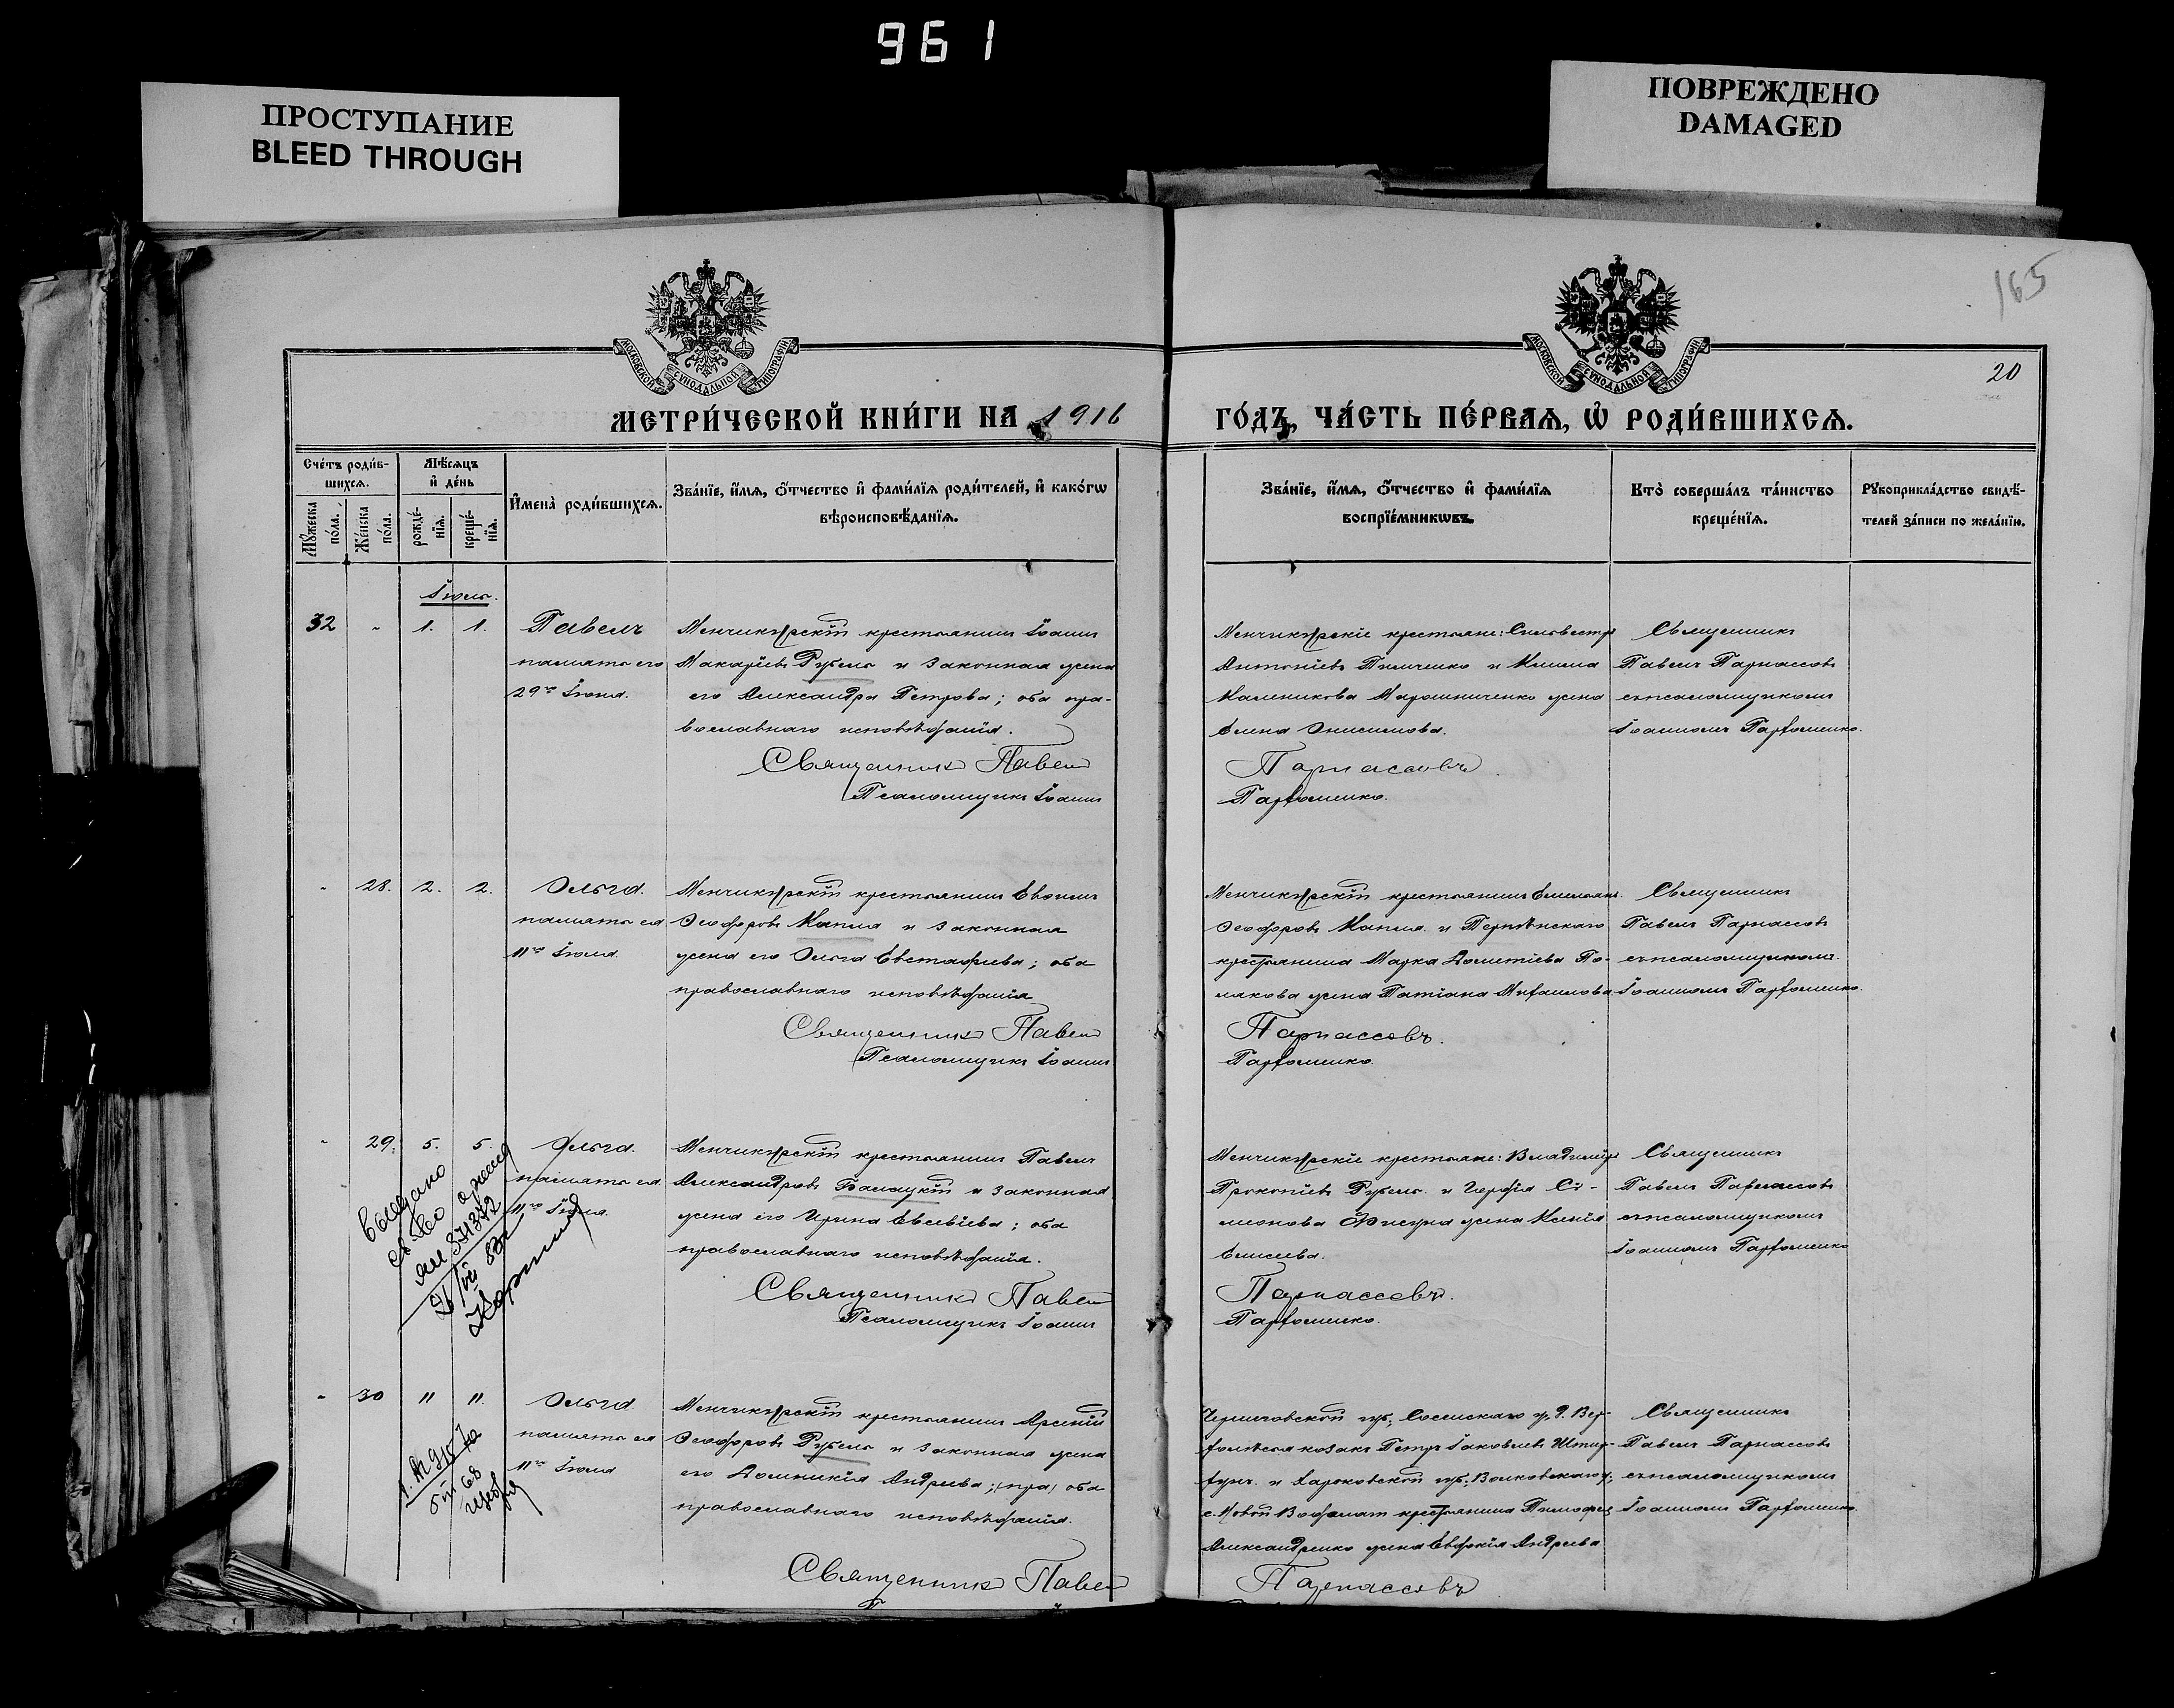 961
ПРОСТУПАНИЕ
BLEED THROUGH
ПОВРЕЖДЕНО
DAMAGED
165
20
МОСКОВСКОЙ СѴНОДАЛЬНОЙ ТИПОГРАФІИ
МОСКОВСКОЙ СѴНОДАЛЬНОЙ ТИПОГРАФІИ
МЕТРИ́ЧЕСКОЙ КНИ́ГИ НА 1916
ГО́ДЪ, ЧА́СТЬ ПЕ́РВАѦ, Ѡ҆ РОДИ́ВШИХСѦ.
Сче́тъ роди́в-
шихсѧ.
Мꙋ́жеска по́ла.
Же́нска по́ла.
Мѣ́сѧцъ
и҆ де́нь
рожде́-
нїѧ.
креще́-
нїѧ.
И҆мена̀ роди́вшихсѧ.
Зва́нїе, и҆́мѧ, ѻ҆́тчество и҆ фами́лїѧ роди́телей, и҆ како́гѡ
вѣроисповѣ́данїѧ.
Зва́нїе, и҆́мѧ, ѻ҆́тчество и҆ фами́лїѧ
воспрїе́мникѡвъ.
Кто̀ соверша́лъ та́инство
креще́нїѧ.
Рꙋкоприкла́дство свидѣ́-
телей за́писи по жела́нїю.
Іюль.
32 - 1. 1. Павелъ
память его
29го Іюня.
Менчикурскій крестьянинъ Іоаннъ
Макаріевъ Рубель и законная жена
его Александра Петрова; оба пра-
вославнаго исповѣданія.
Священникъ Павелъ
Псаломщикъ Іоаннъ
Менчикурскіе крестьяне: Сильвестръ
Антоніевъ Пильченко и Клима
Каленикова Мирошниченко жена
Елена Онисимова.
Парнассовъ
Парфоменко.
Священникъ
Павелъ Парнассовъ
съ псаломщикомъ
Іоанномъ Парфоменко.
- 28. 2. 2. Ольга.
память ея
11го Іюля.
Менчикурскій крестьянинъ Евфимъ
Ѳеодоровъ Капля и законная
жена его Ольга Евстафіева; оба
православнаго исповѣданія
Священникъ Павелъ
Псаломщикъ Іоаннъ
Менчикурскій крестьянинъ Емельянъ
Ѳеодоровъ Капля и Терпѣнскаго
крестьянина Марка Дометіева По-
лякова жена Татіана Михаилова.
Парнассовъ.
Парфоменко.
Священникъ
Павелъ Парнассовъ
съ псаломщикомъ
Іоанномъ Парфоменко.
- 29. 5. 5. Ольга.
память ея
11го Іюля.
выдано
св-во
Менчикурскій крестьянинъ Павелъ
Александровъ Балацкій и законная
жена его Ирина Евсевіева; оба
православнаго исповѣданія.
Священникъ Павелъ
Псаломщикъ Іоаннъ
Менчикурскіе крестьяне: Владиміръ
Прокопіевъ Рубель и Сі-
меонова жена Ксенія
Елисеева.
Парнассовъ.
Парфоменко.
Священникъ
Павелъ Парнассовъ
съ псаломщикомъ
Іоанномъ Парфоменко
- 30 11 11. Ольга
память ея
11го Іюля
Менчикурскій крестьянинъ Арсеній
Ѳеодоровъ Рубель и законная жена
его Домникія Андреева; оба
православнаго исповѣданія.
Священникъ Павелъ
Черниговской губ., у.
козакъ Петръ Іаковлевъ
и Харьковской губ., Волковскаго у.,
с. Новой Водолаги крестьянина Тимофея
Александренко жена Евдокія Андреева
Парнассовъ
Священникъ
Павелъ Парнассовъ
съ псаломщикомъ
Іоанномъ Парфоменко.